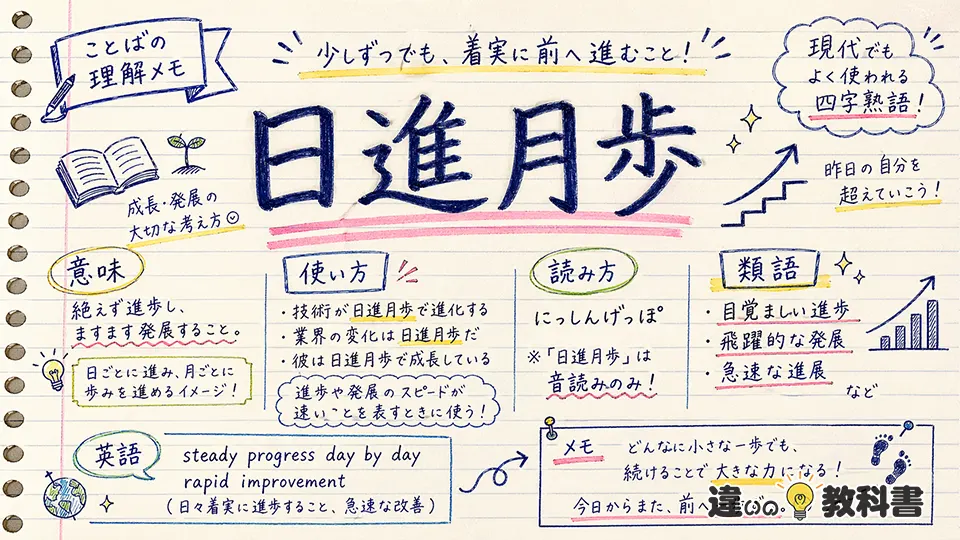 ことばの
理解メモ
少しずつでも、着実に前へ進むこと！
現代でも
よく使われる
四字熟語！
日進月歩
成長・発展の
大切な考え方
昨日の自分を
超えていこう！
意味
絶えず進歩し、
ますます発展すること。
日ごとに進み、月ごとに
歩みを進めるイメージ！
使い方
・技術が日進月歩で進化する
・業界の変化は日進月歩だ
・彼は日進月歩で成長している
進歩や発展のスピードが
速いことを表すときに使う！
読み方
にっしんげっぽ
※「日進月歩」は
音読みのみ！
類語
・目覚ましい進歩
・飛躍的な発展
・急速な進展
など
英語
steady progress day by day
rapid improvement
（日々着実に進歩すること、急速な改善）
メモ
どんなに小さな一歩でも、
続けることで大きな力になる！
今日からまた、前へ
違いの教科書